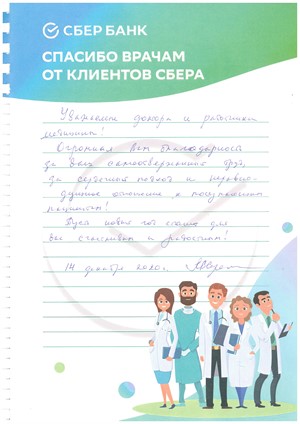 СБЕР БАНК
СПАСИБО ВРАЧАМ
ОТ КЛИЕНТОВ СБЕРА
Уважаемые доктора и работники
медицины!
Огромная Вам благодарность
за Ваш самоотверженный труд,
за сердечный подход и неравно-
душное отношение к
пациентам!
Пусть новый год станет для
вас счастливым и радостным!
14 декабря 2020г.